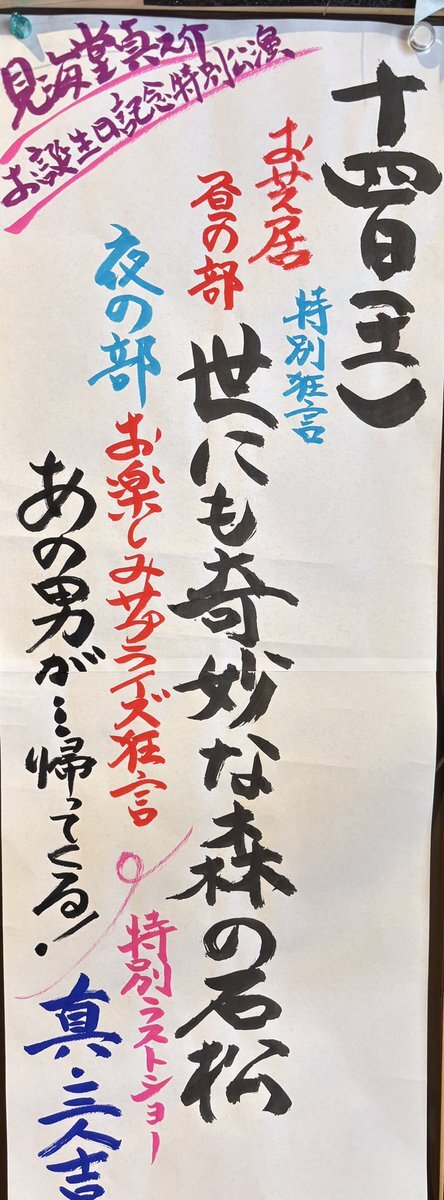 見海堂真之介
お誕生日記念特別公演
十四日(土)
お芝居
特別狂言
昼の部
世にも奇妙な森の石松
夜の部
お楽しみサプライズ狂言
あの男が…帰ってくる!
特別ラストショー
真・三人吉